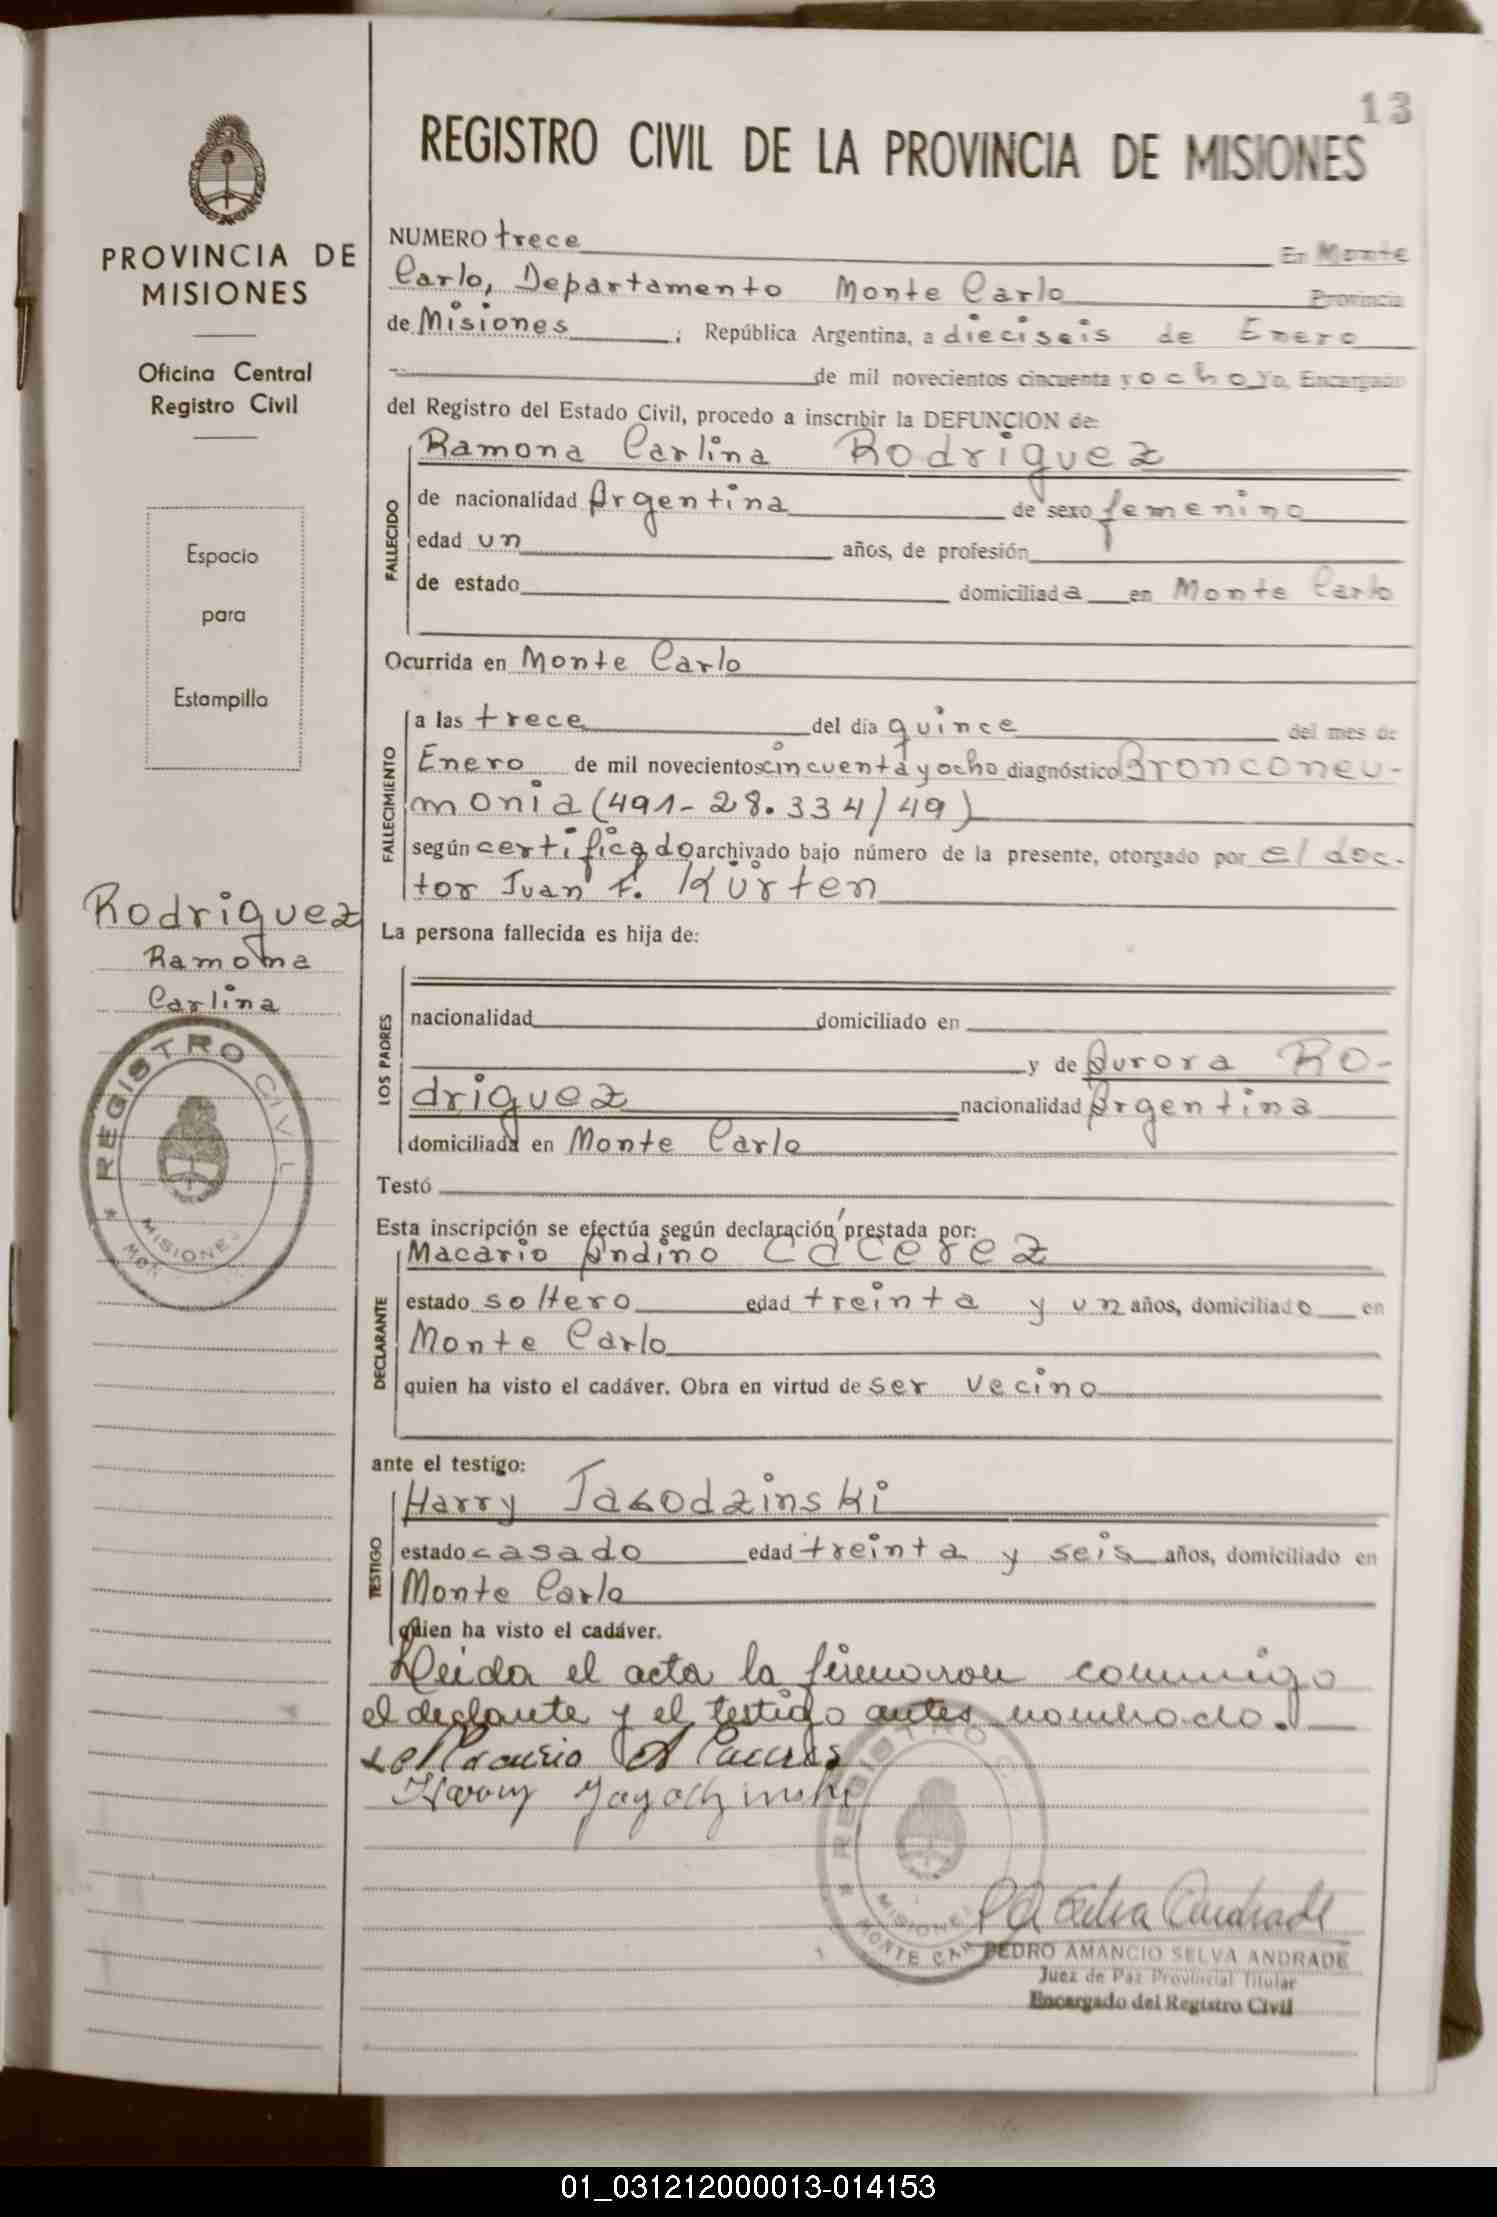 13
REGISTRO CIVIL DE LA PROVINCIA DE MISIONES
PROVINCIA DE
MISIONES
Oficina Central
Registro Civil
Espacio
para
Estampilla
Rodriguez
Ramona
Carlina
REGISTRO CIVIL
MISIONES
NUMERO trece En Monte
Carlo, Departamento Monte Carlo Provincia
de Misiones ; República Argentina, a dieciseis de Enero
de mil novecientos cincuenta y ocho Yo, Encargado
del Registro del Estado Civil, procedo a inscribir la DEFUNCION de:
FALLECIDO
Ramona Carlina Rodriguez
de nacionalidad Argentina de sexo femenino
edad un años, de profesión
de estado domiciliada en Monte Carlo
Ocurrida en Monte Carlo
FALLECIMIENTO
a las trece del día quince del mes de
Enero de mil novecientos cincuenta y ocho diagnóstico Bronconeu-
monia (491-28.334/49)
según certificado archivado bajo número de la presente, otorgado por el doc-
tor Juan F. Kürten
La persona fallecida es hija de:
LOS PADRES
nacionalidad domiciliado en
y de Aurora Ro-
driguez nacionalidad Argentina
domiciliada en Monte Carlo
Testó
Esta inscripción se efectúa según declaración prestada por:
DECLARANTE
Macario Andino Cácerez
estado soltero edad treinta y un años, domiciliado en
Monte Carlo
quien ha visto el cadáver. Obra en virtud de ser vecino
ante el testigo:
TESTIGO
Harry Jagodzinski
estado casado edad treinta y seis años, domiciliado en
Monte Carlo
quien ha visto el cadáver.
Leida el acta la firmaron conmigo
el declante y el testigo antes nombrado.
Harry Jagodzinski
REGISTRO
MISIONES
MONTE CAR
PEDRO AMANCIO SELVA ANDRADE
Juez de Paz Provincial Titular
Encargado del Registro Civil
01_031212000013-014153